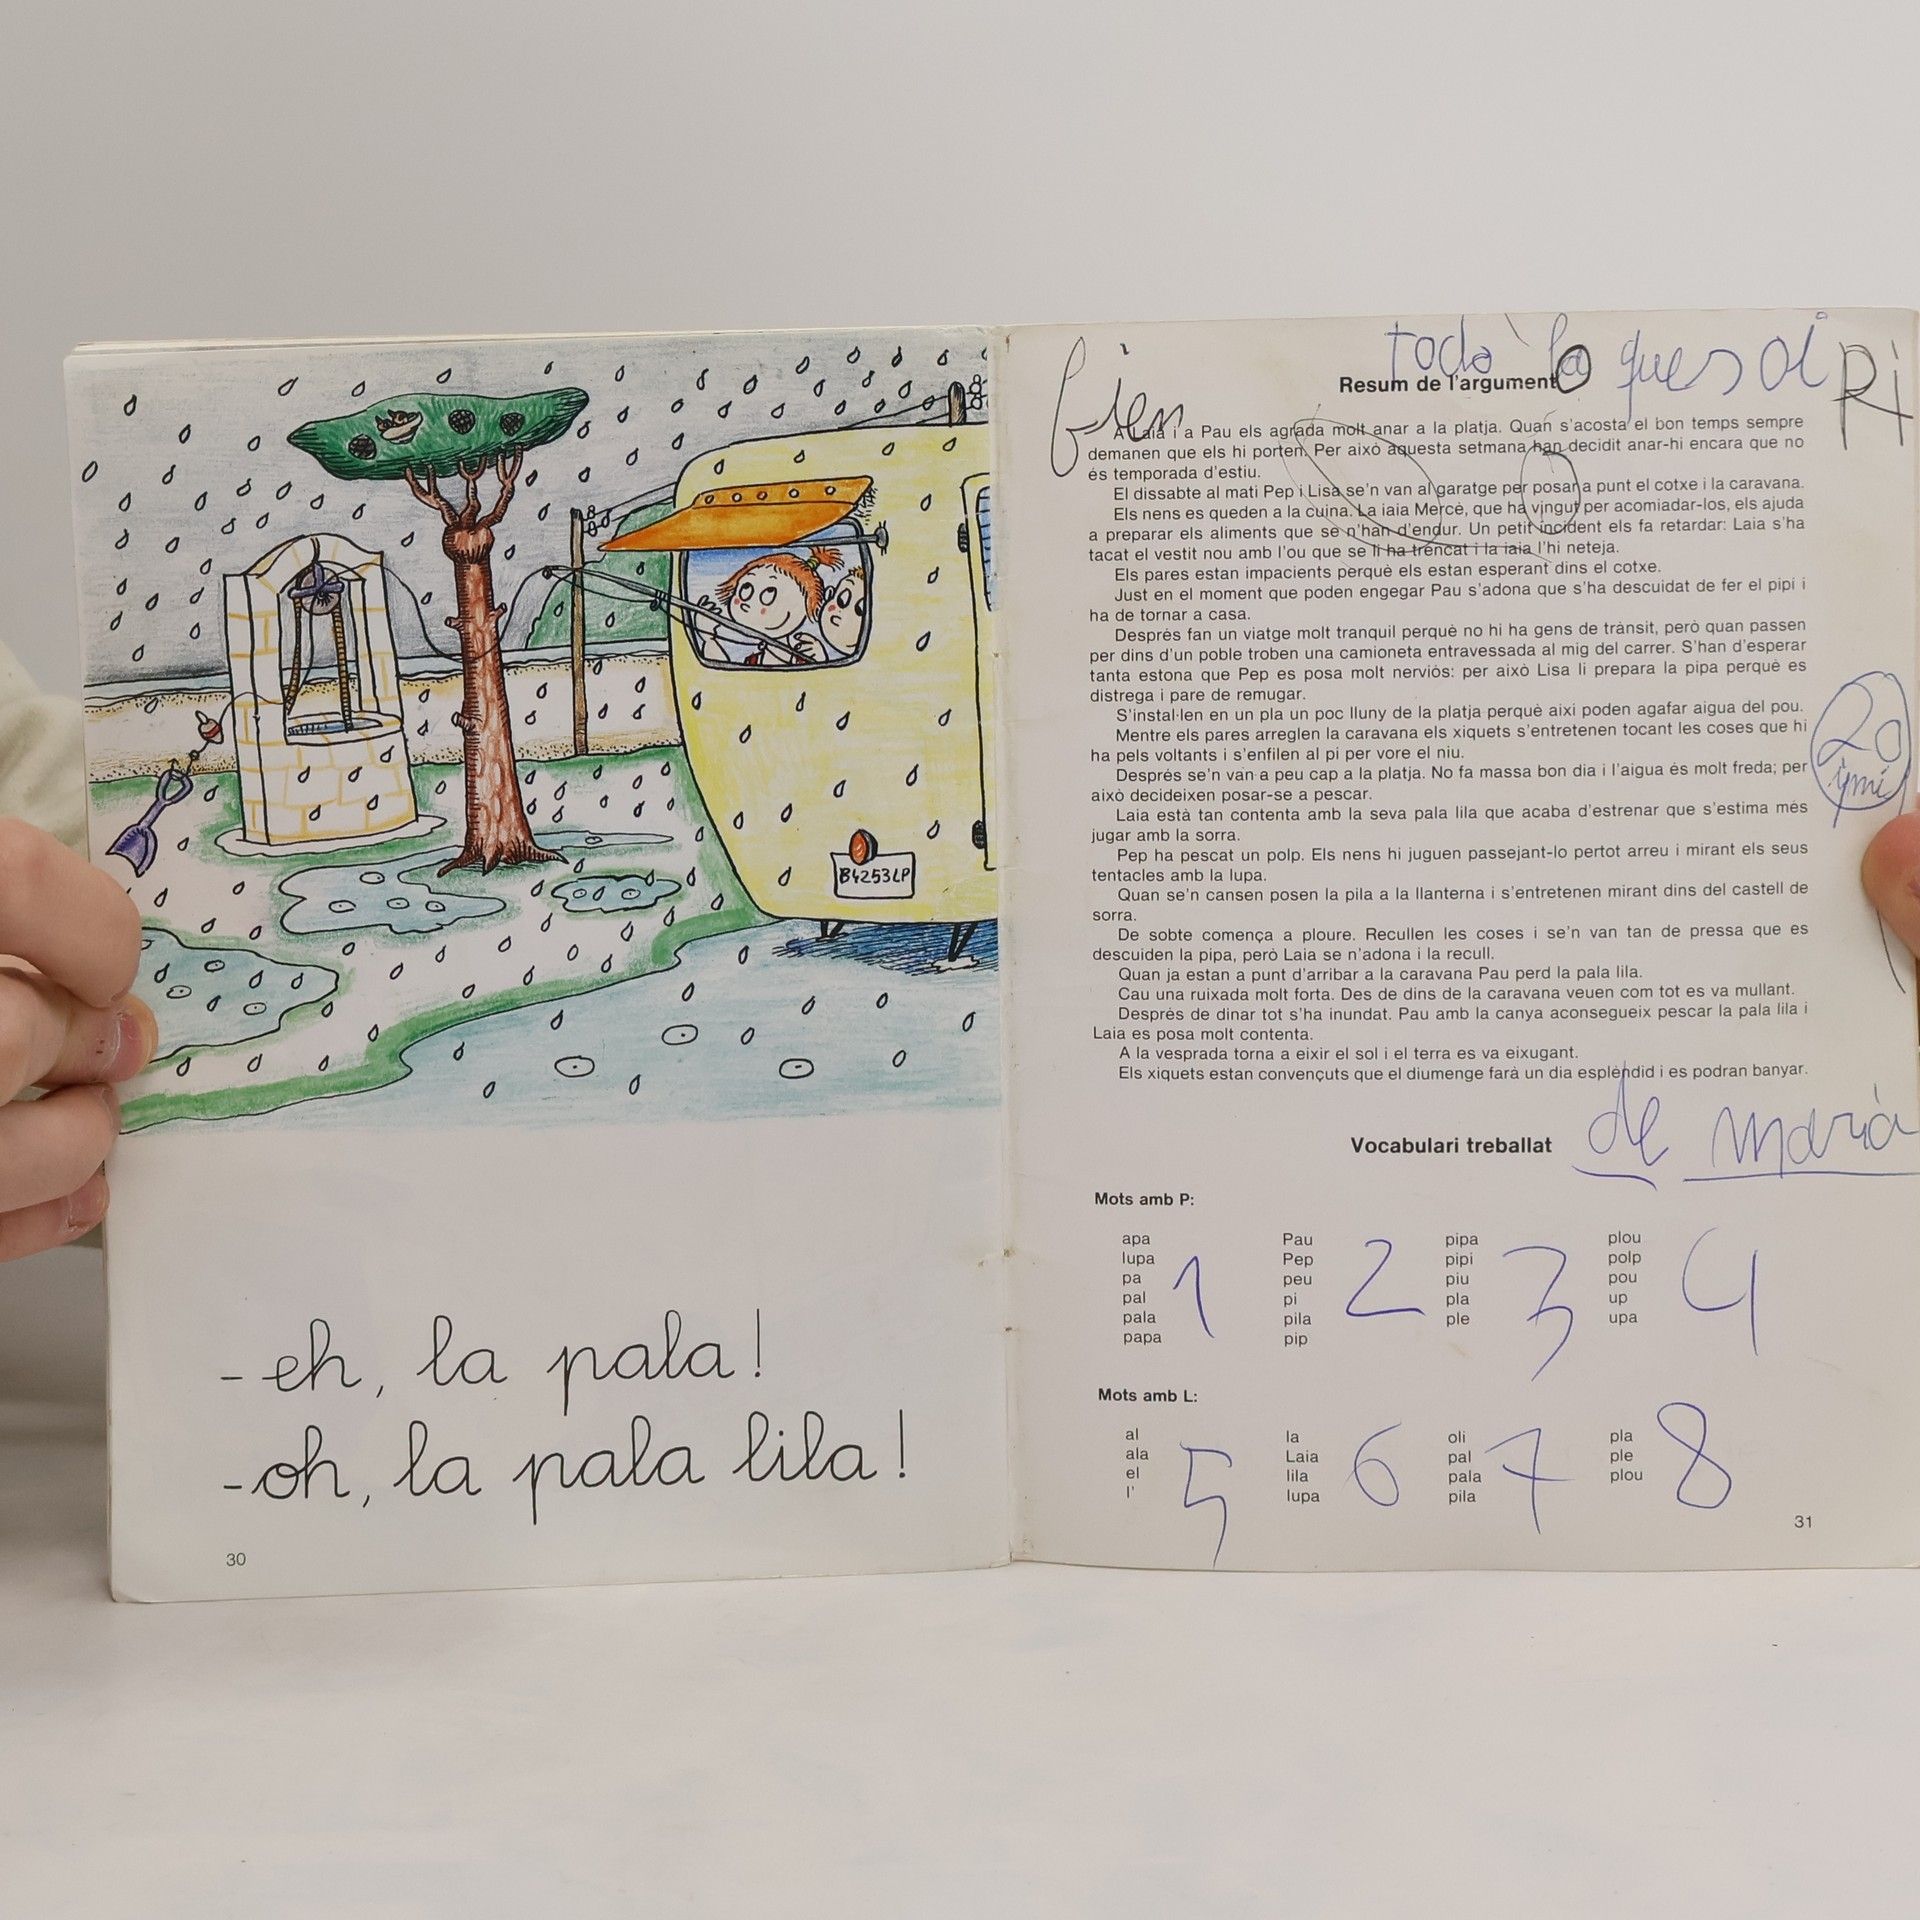 B4253LP
-eh, la pala!
-oh, la pala lila!
30
bien
Resum de l'argument
A Laia i a Pau els agrada molt anar a la platja. Quan s'acosta el bon temps sempre
demanen que els hi porten. Per això aquesta setmana han decidit anar-hi encara que no
és temporada d'estiu.
El dissabte al matí Pep i Lisa se'n van al garatge per posar a punt el cotxe i la caravana.
Els nens es queden a la cuina. La iaia Mercè, que ha vingut per acomiadar-los, els ajuda
a preparar els aliments que se n'han d'endur. Un petit incident els fa retardar: Laia s'ha
tacat el vestit nou amb l'ou que se li ha trencat i la iaia l'hi neteja.
Els pares estan impacients perquè els estan esperant dins el cotxe.
Just en el moment que poden engegar Pau s'adona que s'ha descuidat de fer el pipí i
ha de tornar a casa.
Després fan un viatge molt tranquil perquè no hi ha gens de trànsit, però quan passen
per dins d'un poble troben una camioneta entravessada al mig del carrer. S'han d'esperar
tanta estona que Pep es posa molt nerviós: per això Lisa li prepara la pipa perquè es
distrega i pare de remugar.
S'instal·len en un pla un poc lluny de la platja perquè així poden agafar aigua del pou.
Mentre els pares arreglen la caravana els xiquets s'entretenen tocant les coses que hi
ha pels voltants i s'enfilen al pi per vore el niu.
Després se'n van a peu cap a la platja. No fa massa bon dia i l'aigua és molt freda; per
això decideixen posar-se a pescar.
Laia està tan contenta amb la seva pala lila que acaba d'estrenar que s'estima més
jugar amb la sorra.
Pep ha pescat un polp. Els nens hi juguen passejant-lo pertot arreu i mirant els seus
tentacles amb la lupa.
Quan se'n cansen posen la pila a la llanterna i s'entretenen mirant dins del castell de
sorra.
De sobte comença a ploure. Recullen les coses i se'n van tan de pressa que es
descuiden la pipa, però Laia se n'adona i la recull.
Quan ja estan a punt d'arribar a la caravana Pau perd la pala lila.
Cau una ruixada molt forta. Des de dins de la caravana veuen com tot es va mullant.
Després de dinar tot s'ha inundat. Pau amb la canya aconsegueix pescar la pala lila i
Laia es posa molt contenta.
A la vesprada torna a eixir el sol i el terra es va eixugant.
Els xiquets estan convençuts que el diumenge farà un dia esplèndid i es podran banyar.
20
Vocabulari treballat
de maria
Mots amb P:
apa Pau pipa plou
lupa Pep pipi polp
pa peu piu pou
pal pi pla up
pala pila ple upa
papa pip
1 2 3 4
Mots amb L:
al la oli pla
ala Laia pal ple
el lila pala plou
l' lupa pila
5 6 7 8
31